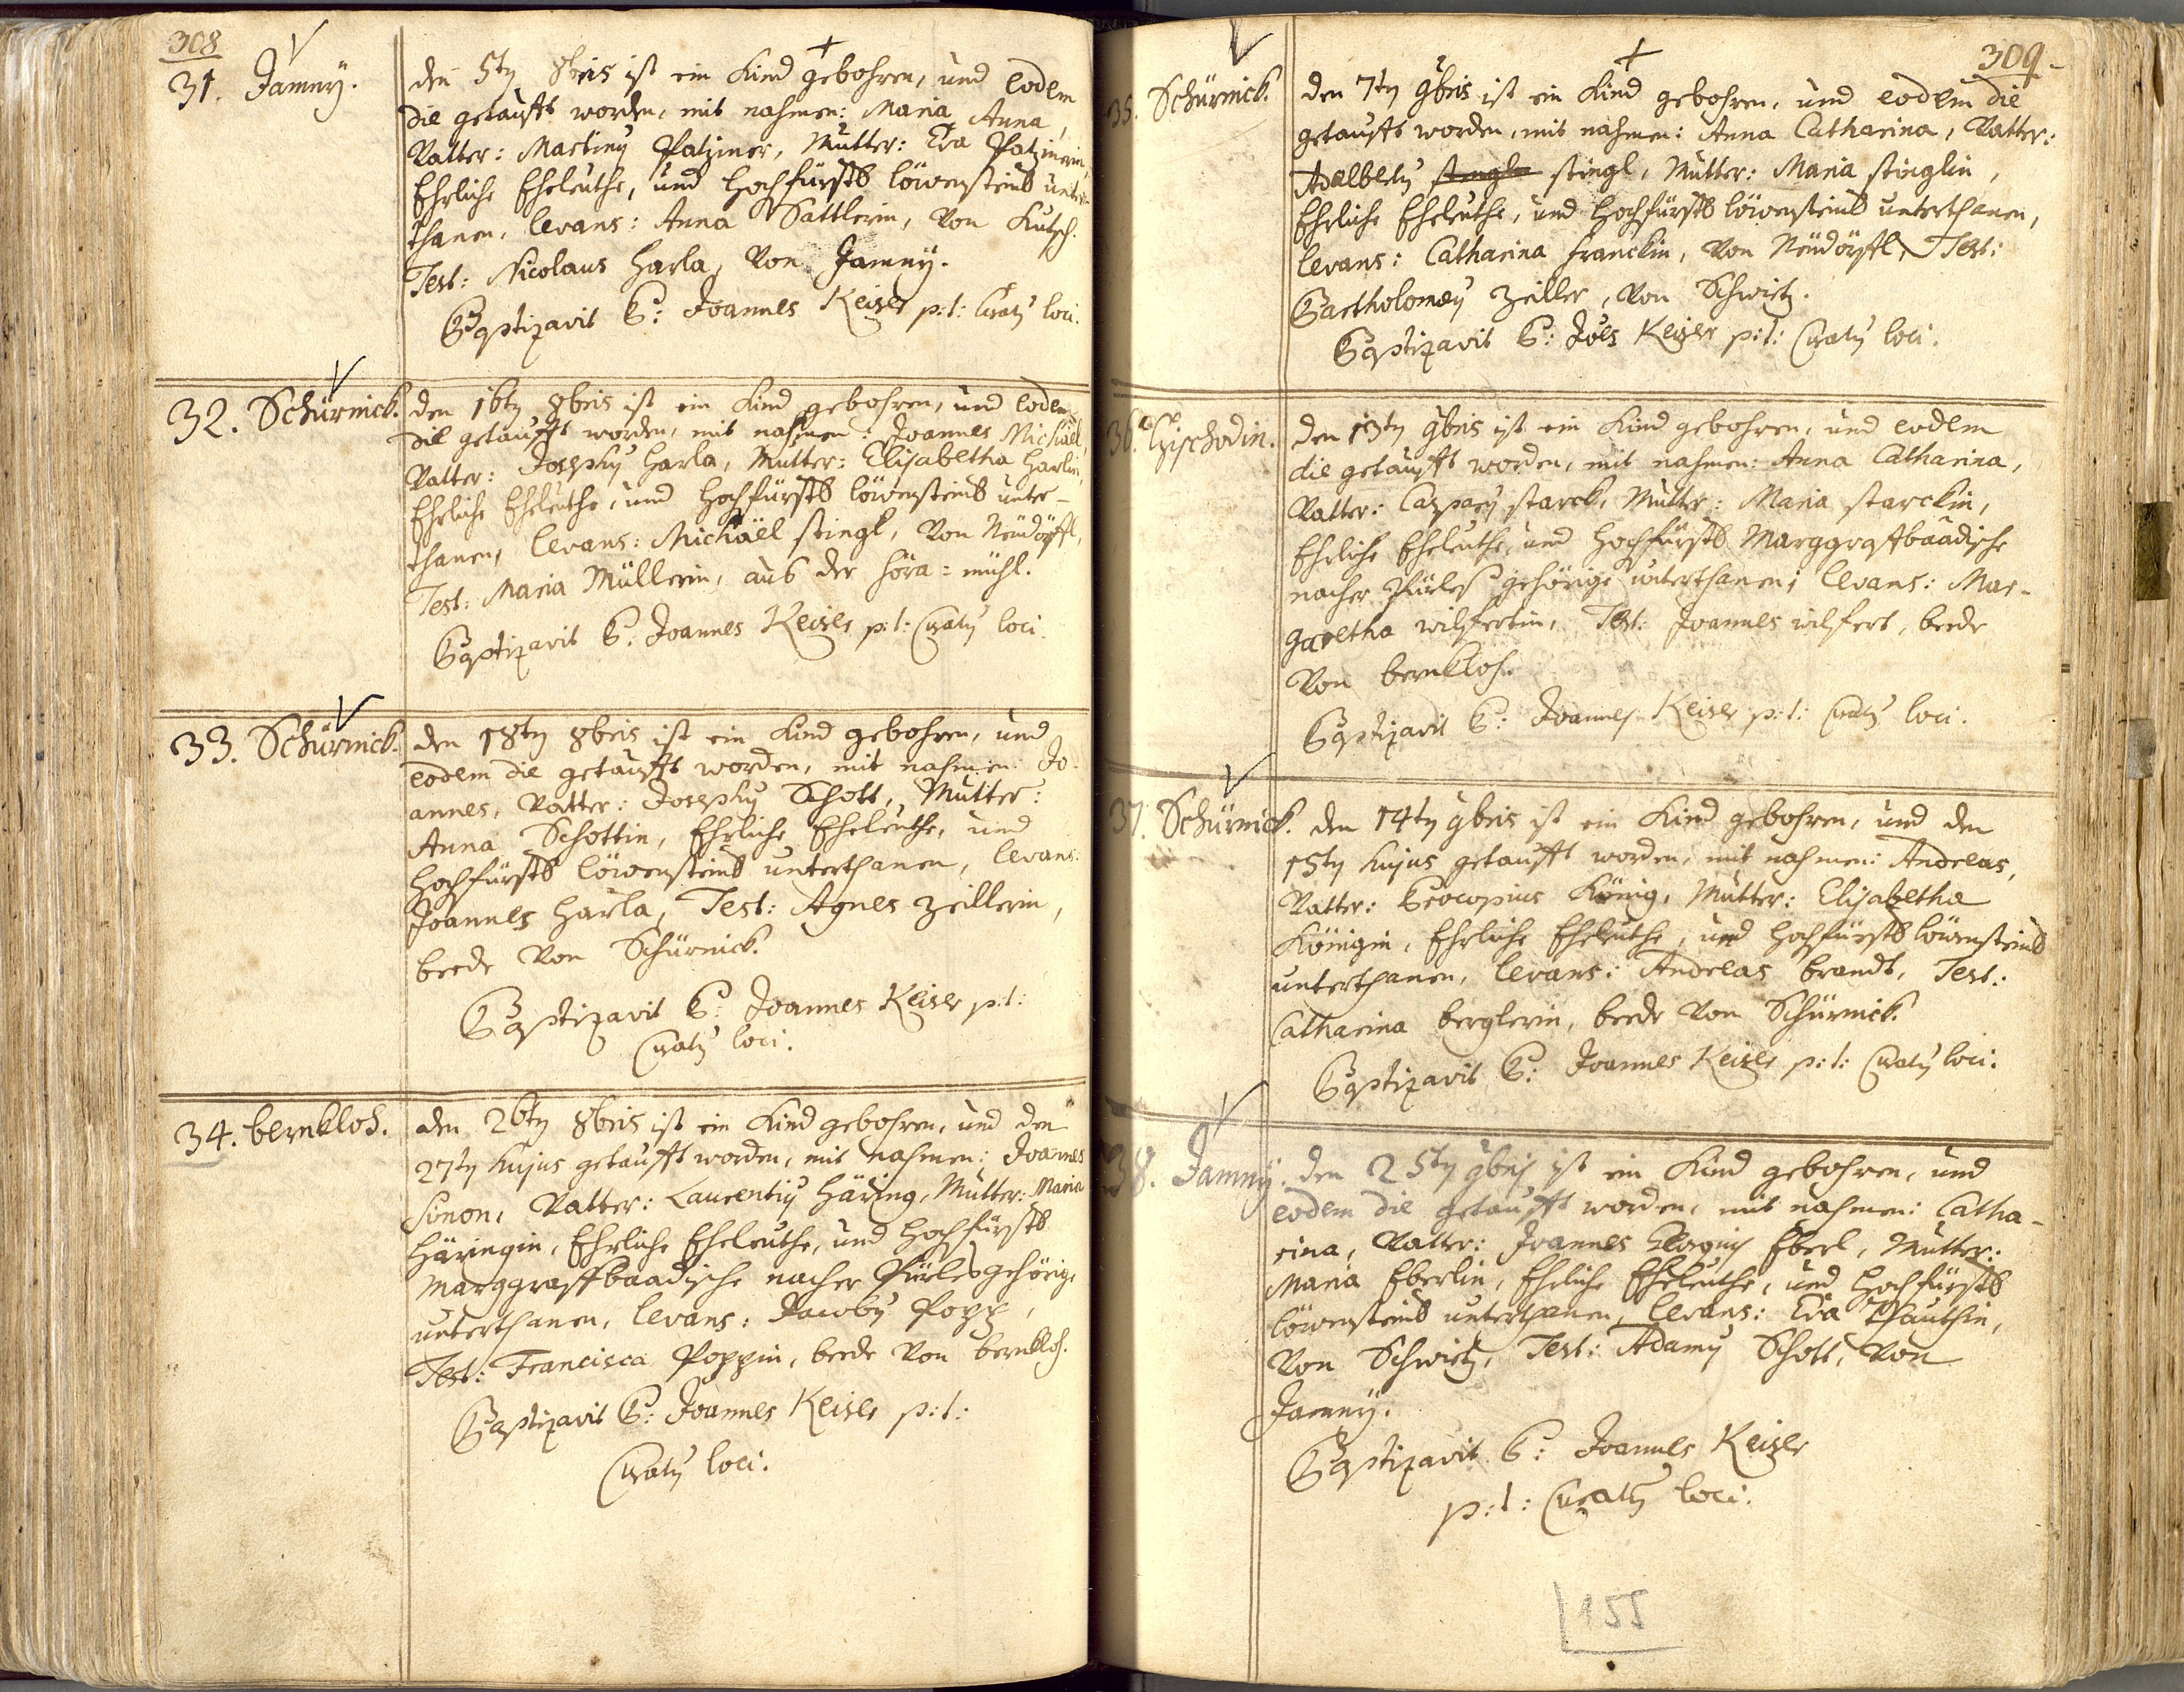 308
31. Jamnÿ.
den 5tꝫ 8bris ist ein Kind gebohren, und eodem
die getaufft worden, mit nahmen: Maria Anna,
Vatter: Martinꝰ Patziner, Mutter: Eva Patzinerin,
Ehrliche Eheleuthe, und Hochfürstl löwensteinl unter-
thanen, levans: Anna Sattlerin, Von Kutsch.
Test: Nicolaus Harla, Von Jamnÿ.
Baptizavit P: Joannes Keiser p:t: Curatꝰ loci.
32. Schürnick.
den 16tꝫ 8bris ist ein Kind gebohren, und eodem
die getaufft worden, mit nahmen: Joannes Michäel,
Vatter: Josephꝰ Harla, Mutter: Elisabetha Harlin,
Ehrliche Eheleuthe, und Hochfürstl löwensteinl unter-
thanen, levans: Michäel stingl, Von Neudörffl,
Test: Maria Müllerin, aus der Höra=mühl.
Baptizavit P. Joannes Keiser p:t: Curatꝰ loci.
33. Schürnick.
den 18tꝫ 8bris ist ein Kind gebohren, und
eodem die getaufft worden, mit nahmen: Jo-
annes, Vatter: Josephꝰ Schott, Mutter:
Anna Schottin, Ehrliche Eheleuthe, und
Hochfürstl löwensteinl unterthanen, levans:
Joannes Harla, Test: Agnes Zeillerin,
beede Von Schürnick.
Baptizavit P: Joannes Keiser p:t:
Curatꝰ loci.
34. bernkloh.
den 26tꝫ 8bris ist ein Kind gebohren, und den
27tꝫ hujus getaufft worden, mit nahmen: Joannes
Simon, Vatter: Laurentiꝰ Häring, Mutter: Maria
Häringin, Ehrliche Eheleuthe, und Hochfürstl
Marggraffbaadische nacher Pürles gehörige
unterthanen, levans: Jacobꝰ Popp,
Test: Francisca Poppin, beede Von bernkloh.
Baptizavit P: Joannes Keiser p:t:
Curatꝰ loci.
309.
35. Schürnick.
den 7tꝫ 9bris ist ein Kind gebohren, und eodem die
getaufft worden, mit nahmen: Anna Catharina, Vatter:
Adalbertꝰ stingl, Mutter: Maria stinglin,
Ehrliche Eheleuthe, und Hochfürstl löwensteinl unterthanen,
levans: Catharina franckin, Von Neudörffl, Test:
Bartholomæꝰ Zeiller, Von Schwietz.
Baptizavit P: Joēs Keiser p:t: Curatꝰ loci.
36.
den 13tꝫ 9bris ist ein Kind gebohren, und eodem
die getaufft worden, mit nahmen: Anna Catharina,
Vatter: Casparꝰ starck, Mutter: Maria starckin,
Ehrliche Eheleuthe, und Hochfürstl Marggraffbaadische
nacher Pürles gehörige unterthanen; levans: Mar-
garetha wilfertin, Test: Joannes wilfert, beede
Von bernkloh.
Baptizavit P: Joannes Keiser p:t: Curatꝰ loci.
37. Schürnick.
den 14tꝫ 9bris ist ein Kind gebohren, und den
15tꝫ hujus getaufft worden, mit nahmen: Andreas,
Vatter: Procopius König, Mutter: Elisabetha
Königin, Ehrliche Eheleuthe, und Hochfürstl löwensteinl
unterthanen, levans: Andreas brandt, Test:
Catharina berglerin, beede Von Schürnick.
Baptizavit P: Joannes Keiser p:t: Curatꝰ loci.
38. Jamnÿ.
den 25tꝫ 9bris ist ein Kind gebohren, und
eodem die getaufft worden, mit nahmen: Catha-
rina, Vatter: Joannes Eberl, Mutter:
Maria Eberlin, Ehrliche Eheleuthe, und Hochfürstl
löwensteinl unterthanen, levans: Eva
Von Schwietz, Test: Adamꝰ Schott, Von
Jamnÿ.
Baptizavit P: Joannes Keiser
p:t: Curatꝰ loci.
155